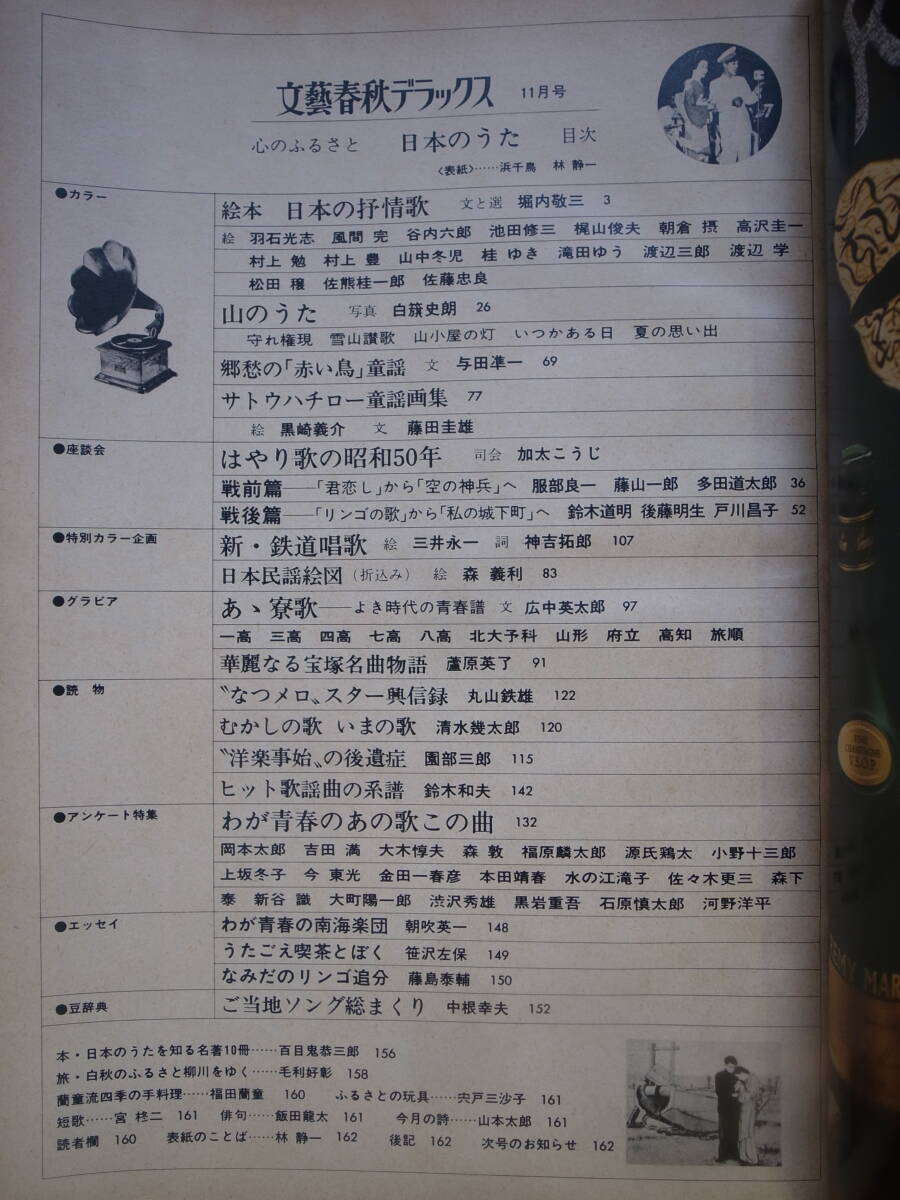 文藝春秋デラックス 11月号
心のふるさと 日本のうた 目次
〈表紙〉……浜千鳥 林 静一
●カラー
絵本 日本の抒情歌 文と選 堀内敬三 3
絵 羽石光志 風間 完 谷内六郎 池田修三 梶山俊夫 朝倉 摂 高沢圭一
村上 勉 村上 豊 山中冬児 桂 ゆき 滝田ゆう 渡辺三郎 渡辺 学
松田 穣 佐熊桂一郎 佐藤忠良
山のうた 写真 白簱史朗 26
守れ権現 雪山讃歌 山小屋の灯 いつかある日 夏の思い出
郷愁の「赤い鳥」童謡 文 与田凖一 69
サトウハチロー童謡画集 77
絵 黒崎義介 文 藤田圭雄
●座談会
はやり歌の昭和50年 司会 加太こうじ
戦前篇──「君恋し」から「空の神兵」へ 服部良一 藤山一郎 多田道太郎 36
戦後篇──「リンゴの歌」から「私の城下町」へ 鈴木道明 後藤明生 戸川昌子 52
●特別カラー企画
新・鉄道唱歌 絵 三井永一 詞 神吉拓郎 107
日本民謡絵図（折込み） 絵 森 義利 83
●グラビア
あゝ寮歌──よき時代の青春譜 文 広中英太郎 97
一高 三高 四高 七高 八高 北大予科 山形 府立 高知 旅順
華麗なる宝塚名曲物語 蘆原英了 91
●読 物
〝なつメロ〟スター興信録 丸山鉄雄 122
むかしの歌 いまの歌 清水幾太郎 120
〝洋楽事始〟の後遺症 園部三郎 115
ヒット歌謡曲の系譜 鈴木和夫 142
●アンケート特集
わが青春のあの歌この曲 132
岡本太郎 吉田 満 大木惇夫 森 敦 福原麟太郎 源氏鶏太 小野十三郎
上坂冬子 今 東光 金田一春彦 本田靖春 水の江滝子 佐々木更三 森下
泰 新谷 識 大町陽一郎 渋沢秀雄 黒岩重吾 石原慎太郎 河野洋平
●エッセイ
わが青春の南海楽団 朝吹英一 148
うたごえ喫茶とぼく 笹沢左保 149
なみだのリンゴ追分 藤島泰輔 150
●豆辞典
ご当地ソング総まくり 中根幸夫 152
本・日本のうたを知る名著10冊……百目鬼恭三郎 156
旅・白秋のふるさと柳川をゆく……毛利好彰 158
蘭童流四季の手料理……福田蘭童 160 ふるさとの玩具……宍戸三沙子 161
短歌……宮 柊二 161 俳句……飯田龍太 161 今月の詩……山本太郎 161
読者欄 160 表紙のことば……林 静一 162 後記 162 次号のお知らせ 162
FINE
CHAMPAGNE
V.S.O.P